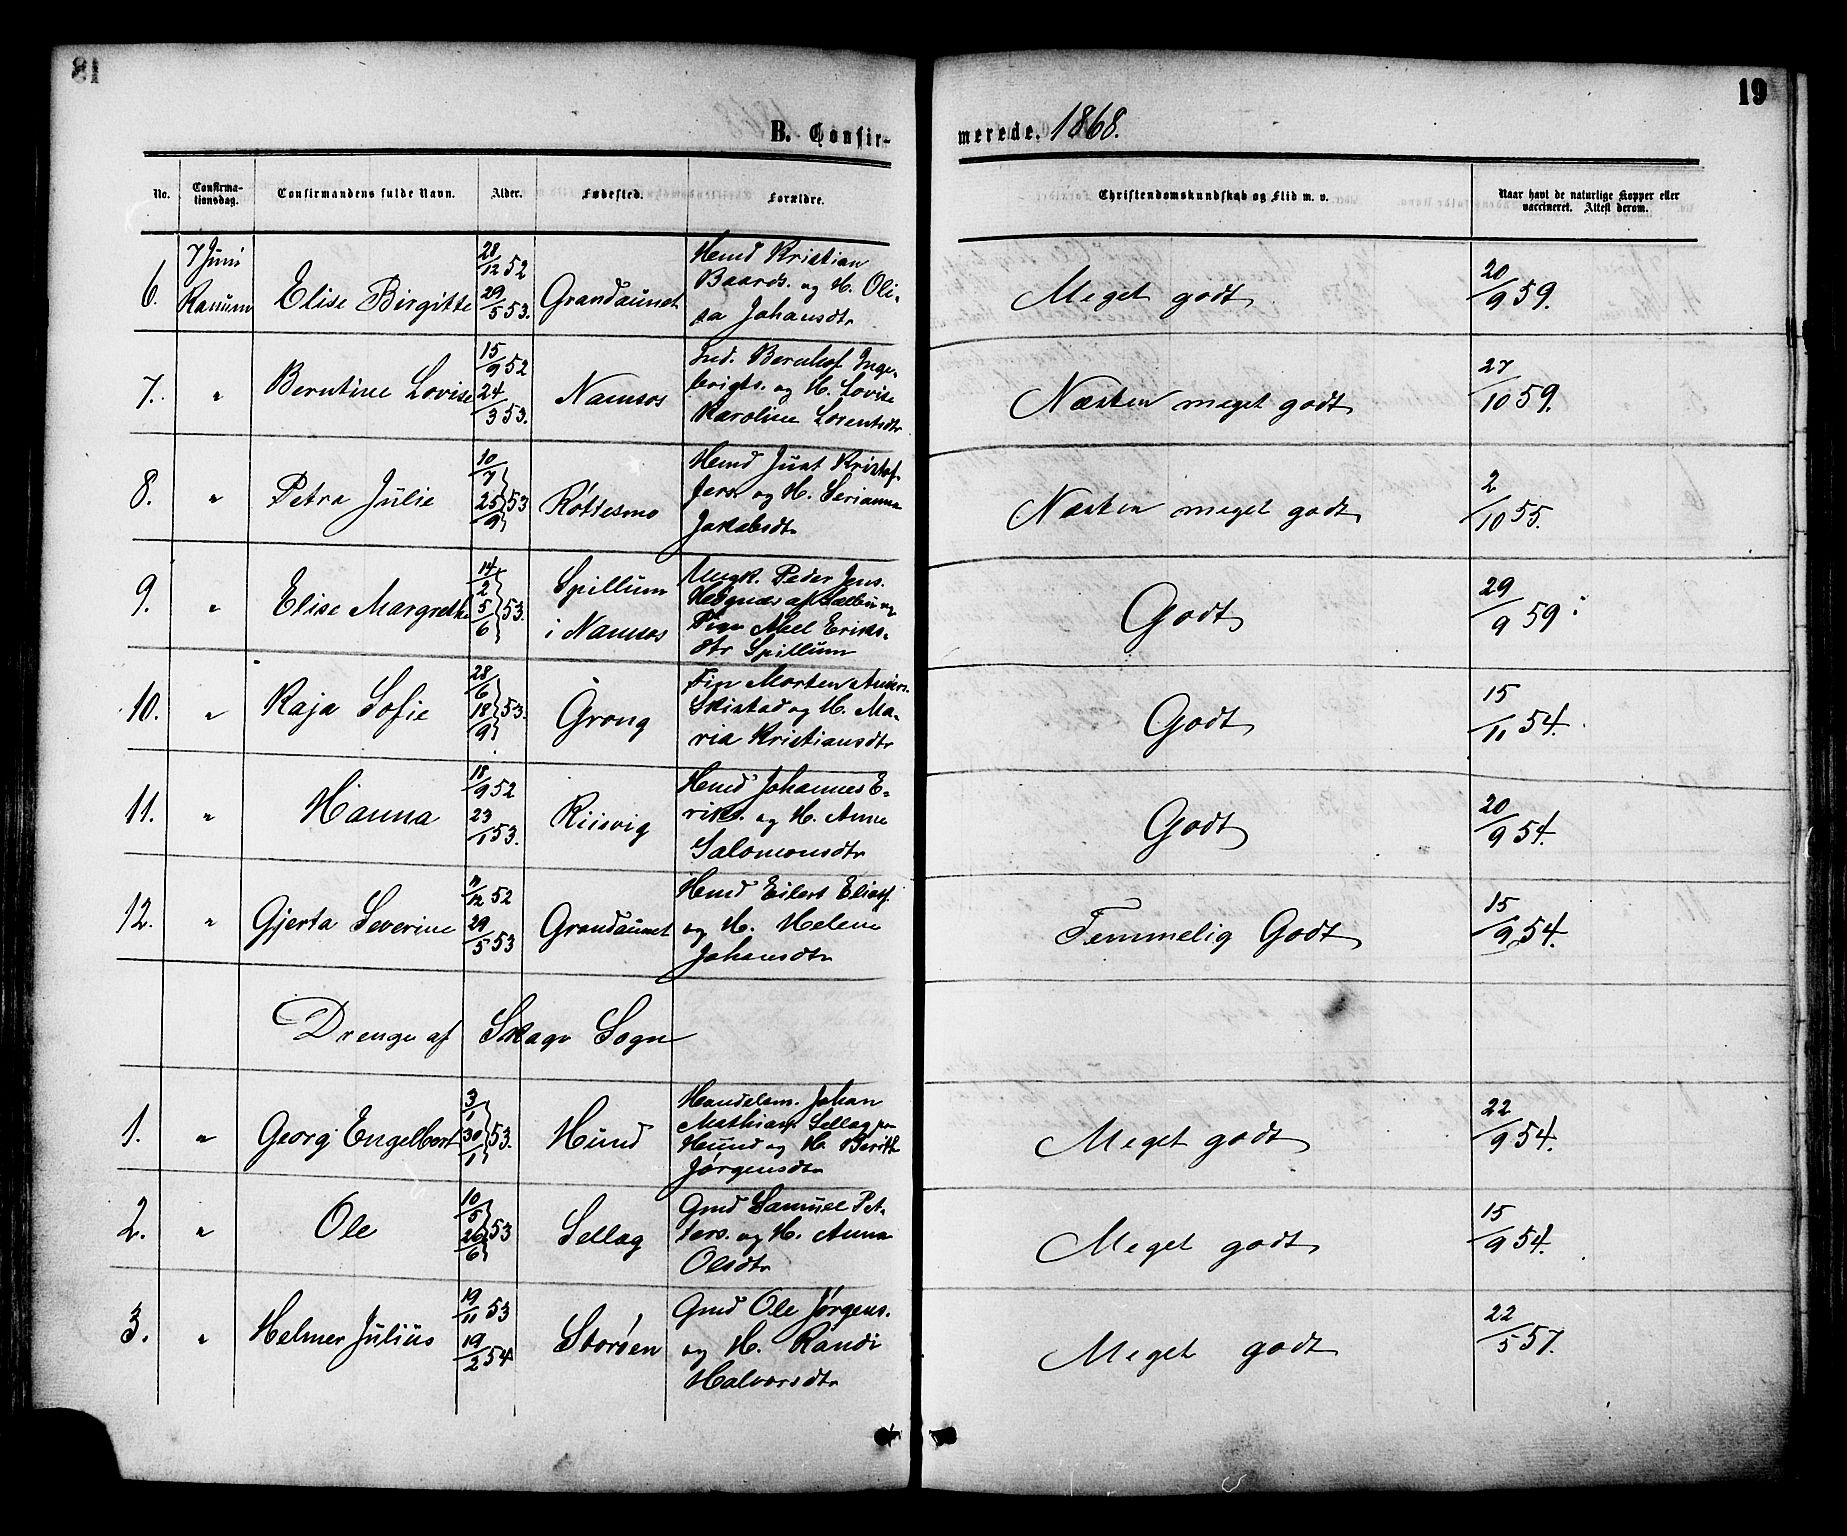 18
19
B. Confirmerede. 1868.
No.
Confirmationsdag.
Confirmandens fulde Navn.
Alder.
Fødested.
Forældre.
Christendomskundskab og Flid m. v.
Naar havt de naturlige Kopper eller vaccineret. Attest derom.
6. 7 Juni Ranum Elise Birgitte 28/12 52 29/5 53. Grandaunet
Hmd Kristian
Baards. og H. Oli-
sa Johansdtr
Meget godt 20/9 59.
7. " Berntine Lovise 15/9 52 24/3 53. Namsos
Ind. Bernhof Inge-
brigts. og H. Lovise
Karoline Lorentsdtr
Næsten meget godt 27/10 59.
8. " Petra Julie 10/7 25/9 53 Røttesmo
Hmd Just Kristof-
fers. og H. Serianna
Jakobsdtr
Næsten meget godt 2/10 55.
9. " Elise Margrethe 14/2 5/6 53. Spillum i Namsos
Ungk. Peder Jens.
Hegnæs af Sælbu og
Pige Abel Eriks-
dtr Spillum
Godt 29/9 59
10. " Kaja Sofie 28/6 18/9 53. Grong
Fin Morten Anders.
Skistad og H. Ma-
ria Kristiansdtr
Godt 15/11 54.
11. " Hanna 18/9 52 23/1 53. Riisvig
Hmd Johannes E-
riks. og H. Anne
Salomonsdtr
Godt 20/9 54.
12. " Gjerta Severine 11/12 52 29/5 53 Grandaunet
Hmd Eilert Eliasf.
og H. Helene
Johansdtr
Temmelig Godt 15/9 54.
Drenge af Skage Sogn
1. " Georg Engelbert 3/1 30/1 53. Hund
Handelsm. Johan
Mathias Sellæg paa
Hund og H. Berith
Jørgensdtr
Meget godt 22/9 54.
2. " Ole 10/5 26/6 53 Sellæg
Gmd Samuel Pet-
ters. og H. Anna
Olsdtr
Meget godt 15/9 54.
3. " Helmer Julius 19/11 53 19/2 54 Storøen
Gmd Ole Jørgens.
og H. Randi
Halvorsdtr
Meget godt 22/5 57.